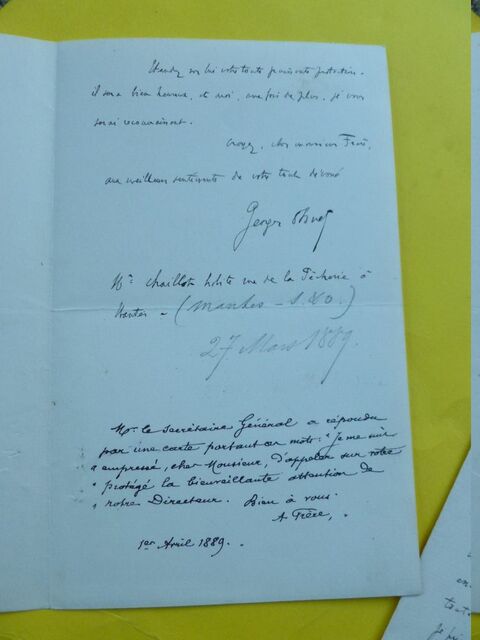 Etendez sur lui votre toute puissante protection.
il sera bien heureux, et moi, une fois de plus, je vous
serai reconnaissant.
Croyez, cher monsieur Frère,
aux meilleurs sentiments de votre tout dévoué
Georges Ohnet
Mr Chaillot habite rue de la Pêcherie à
Mantes - (Mantes - S. &O.)
27 Mars 1889.
Mr. le Secrétaire Général a répondu
par une carte portant ces mots: "Je me suis
" empressé, cher Monsieur, d'appeler sur votre
" protégé la bienveillante attention de
" notre Directeur. Bien à vous.
A Frère,
1er Avril 1889. -